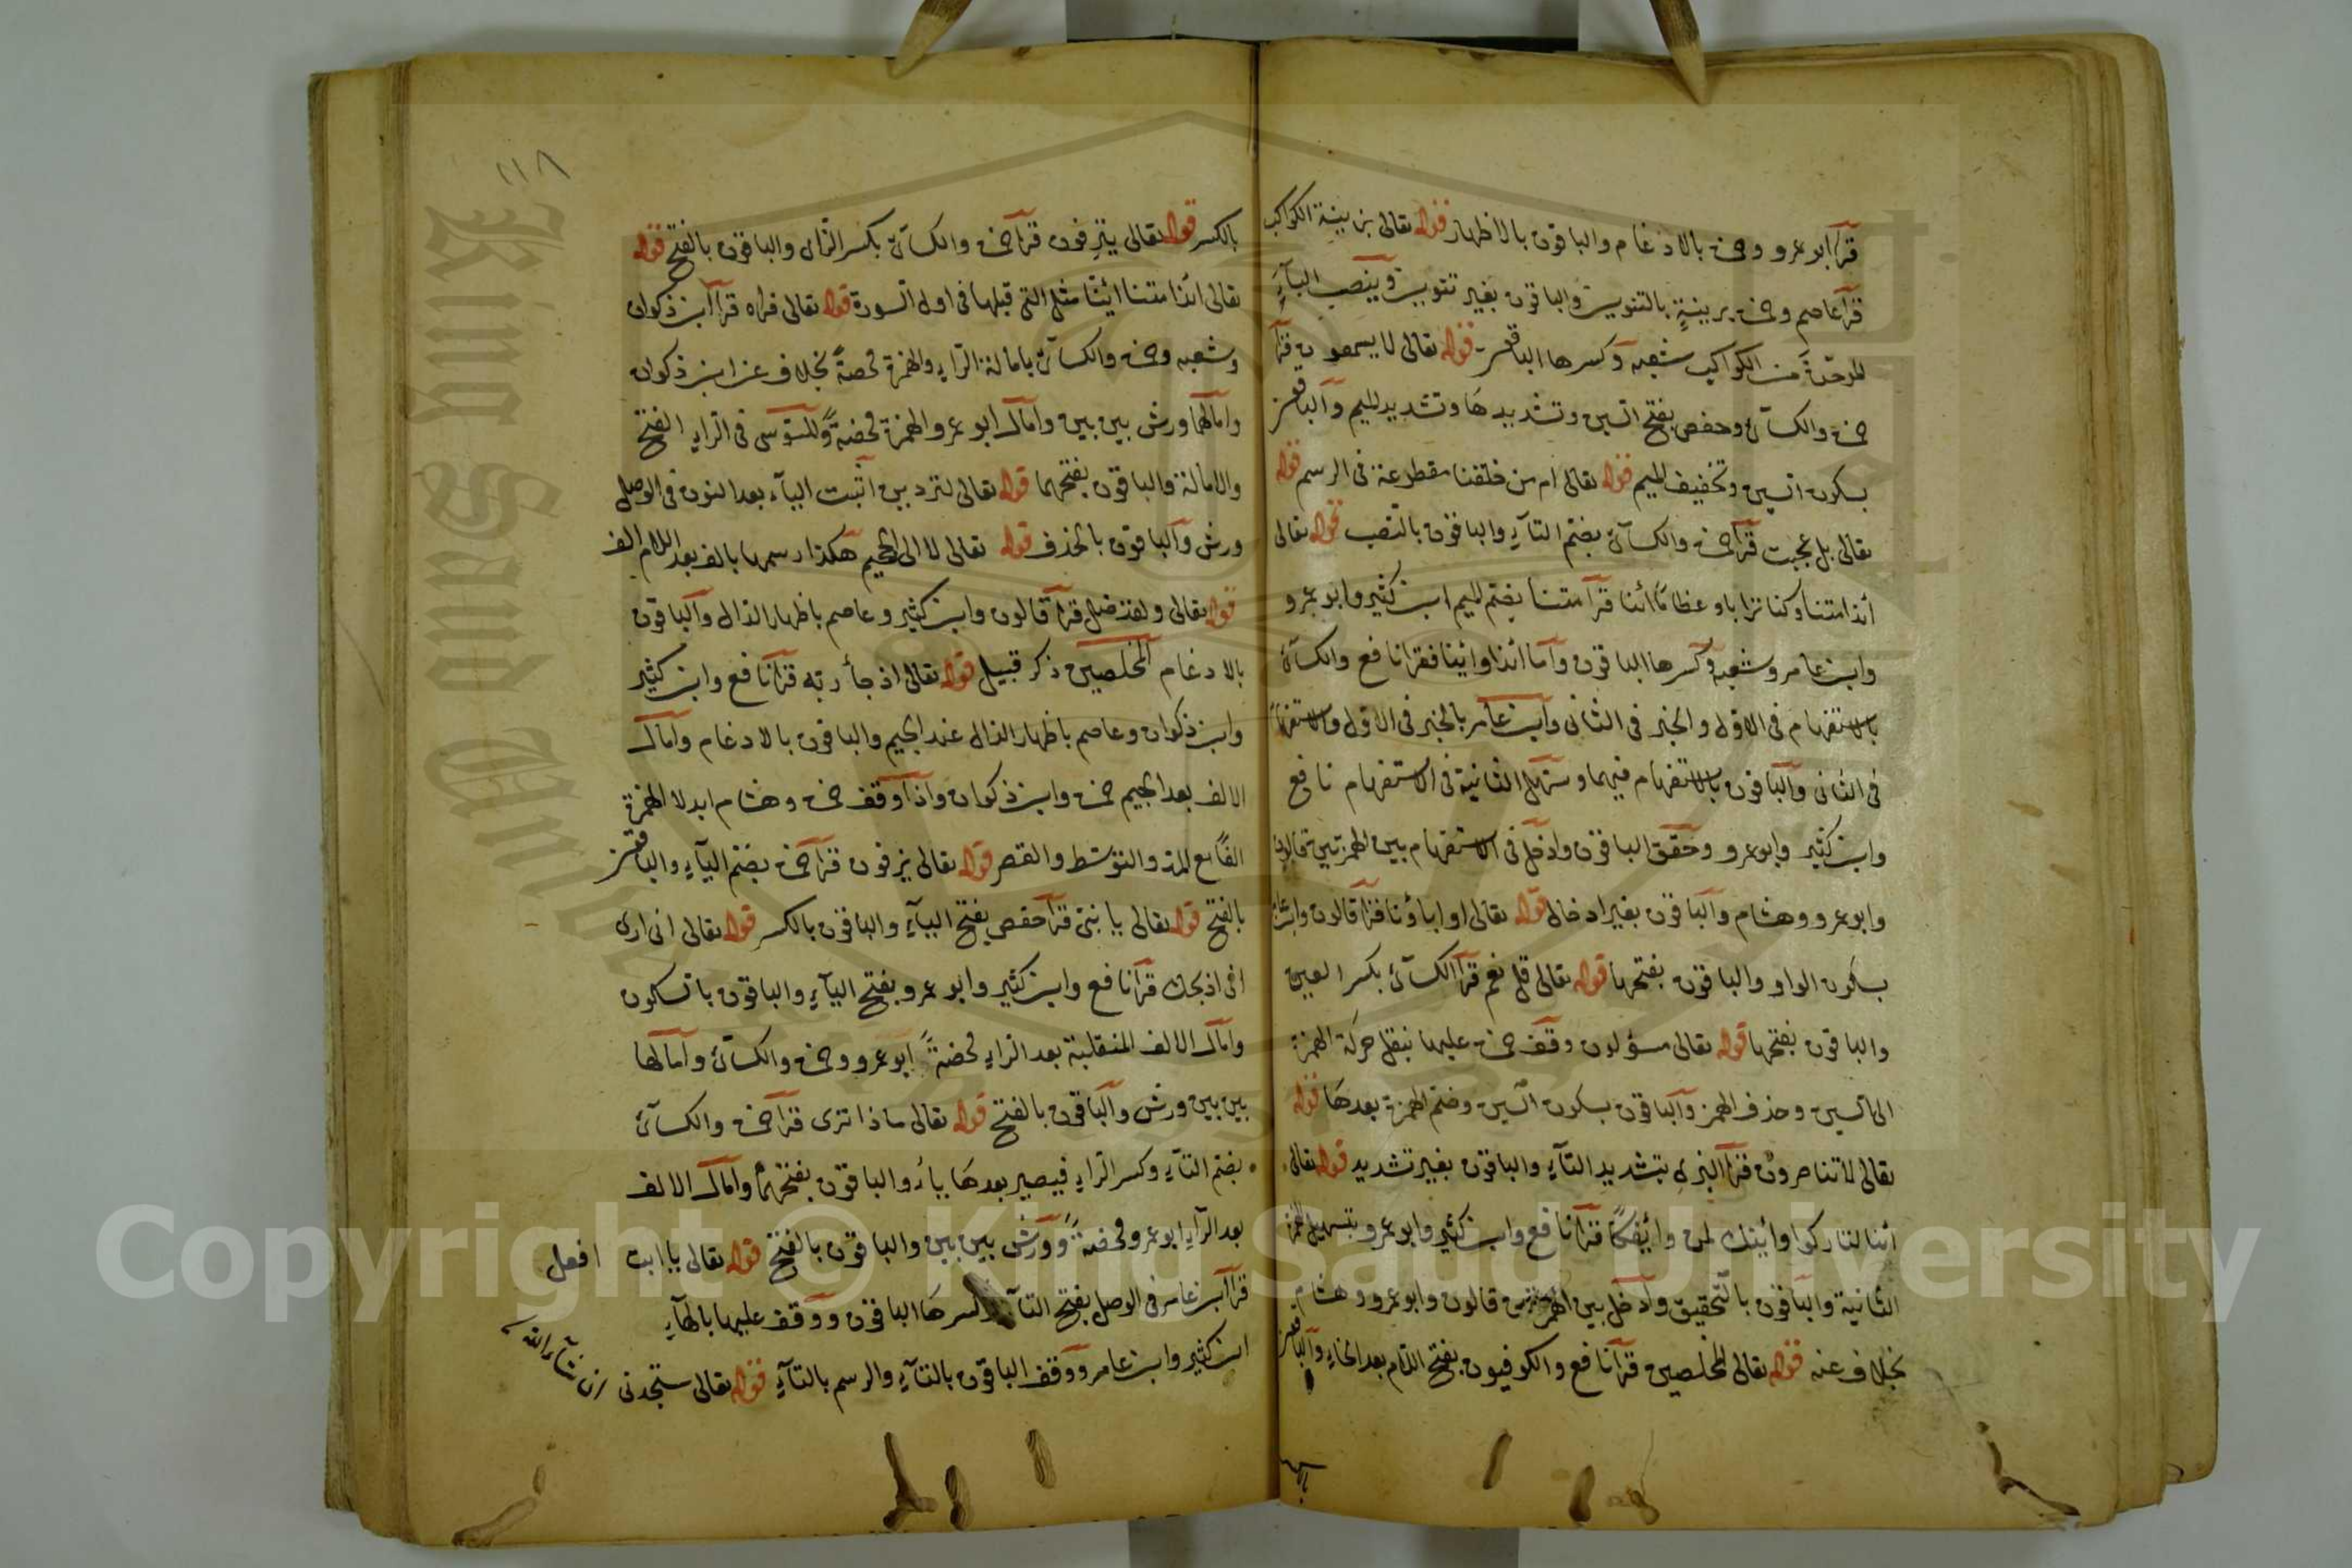 قرأ ابو عمرو وحمزة بالادغام والباقون بالاظهار قوله تعالى بزينة الكواكب
قرأ عاصم وحمزة بزينةٍ بالتنوين والباقون بغير تنوين وينصب الباء
الموحدة من الكواكب شعبه وكسرها الباقون قوله تعالى لا يسمعون قرأ
حمزة والكسائى وحفص بفتح السين وتشديدها وتشديد الميم والباقون
بسكون السين وتخفيف الميم قوله تعالى ام من خلقنا مقطوعة فى الرسم قوله
تعالى بل عجبت قرأ حمزة والكسائى بضم التاء والباقون بالنصب قوله تعالى
أئذا متنا وكنا ترابا وعظامًا أئنا قرأ متنا بضم الميم ابن كثير وابو عمرو
وابن عامر وشعبه وكسرها الباقون وأما أئذا وائنا فقرا نافع والكسائى
بالاستفهام فى الاول والخبر فى الثانى وابن عامر بالخبر فى الاول والاستفهام
فى الثانى والباقون بالاستفهام فيهما وسهل الثانية فى الاستفهام نافع
وابن كثير وابو عمرو وحقق الباقون وادخل فى الاستفهام بين الهمزتين قالون
وابو عمرو وهشام والباقون بغير ادخال قوله تعالى او اباؤنا قرأ قالون وابن عامر
بسكون الواو والباقون بفتحها قوله تعالى قل نعم قرأ الكسائى بكسر العين
والباقون بفتحها قوله تعالى مسؤلون وقف حمزة عليها بنقل حركة الهمزة
الى السين وحذف الهمز والباقون بسكون السين وضم الهمزة بعدها قوله
تعالى لا تناصرون قرأ البزى بتشديد التاء والباقون بغير تشديد قوله تعالى
أئنا لتاركوا وأئنك لمن وأئفكًا قرأ نافع وابن كثير وابو عمرو بتسهيل الهمزة
الثانية والباقون بالتحقيق وأدخل بين الهمزتين قالون وابو عمرو وهشام
بخلاف عنه قوله تعالى المخلصين قرأ نافع والكوفيون بفتح اللام بعد الخاء والباقون
١١٨
بالكسر قوله تعالى ينزفون قرأ حمزة والكسائى بكسر الزاى والباقون بالفتح قوله
تعالى ائذا متنا ائنا مثل التى قبلها فى اول السورة قوله تعالى فراه قرأ ابن ذكوان
وشعبه وحمزة والكسائى بامالة الراء والهمزة محضةً بخلاف عن ابن ذكوان
وامالهما ورش بين بين وامال ابو عمرو الهمزة محضةً وللسوسى فى الراء الفتح
والامالة والباقون بفتحهما قوله تعالى لتردين اثبت الياء بعد النون فى الوصل
ورش والباقون بالحذف قوله تعالى لا الى الجحيم هكذا رسمها بالف بعد اللام الف
قوله تعالى ولقد ضل قرأ قالون وابن كثير وعاصم باظهار الدال والباقون
بالادغام المخلصين ذكر قبيل قوله تعالى اذ جأ ربه قرأ نافع وابن كثير
وابن ذكوان وعاصم باظهار الذال عند الجيم والباقون بالادغام وامال
الالف بعد الجيم حمزة وابن ذكوان واذا وقف حمزة وهشام ابدلا الهمزة
الفًا مع المد والتوسط والقصر قوله تعالى يزفون قرأ حمزة بضم الياء والباقون
بالفتح قوله تعالى يا بنىّ قرأ حفص بفتح الياء والباقون بالكسر قوله تعالى انى ارى
انى اذبحك قرأ نافع وابن كثير وابو عمرو بفتح الياء والباقون بالسكون
وامال الالف المنقلبة بعد الراء محضةً ابو عمرو وحمزة والكسائى وامالها
بين بين ورش والباقون بالفتح قوله تعالى ماذا ترى قرأ حمزة والكسائى
بضم التاء وكسر الراء فيصير بعدها ياء والباقون بفتحهما وامال الالف
بعد الراء ابو عمرو محضةً وورش بين بين والباقون بالفتح قوله تعالى يا ابت افعل
قرأ ابن عامر فى الوصل بفتح التاء وكسرها الباقون ووقف عليها بالهاء
ابن كثير وابن عامر ووقف الباقون بالتاء والرسم بالتاء قوله تعالى ستجدنى ان شاء الله
King Saud University
Copyright © King Saud University